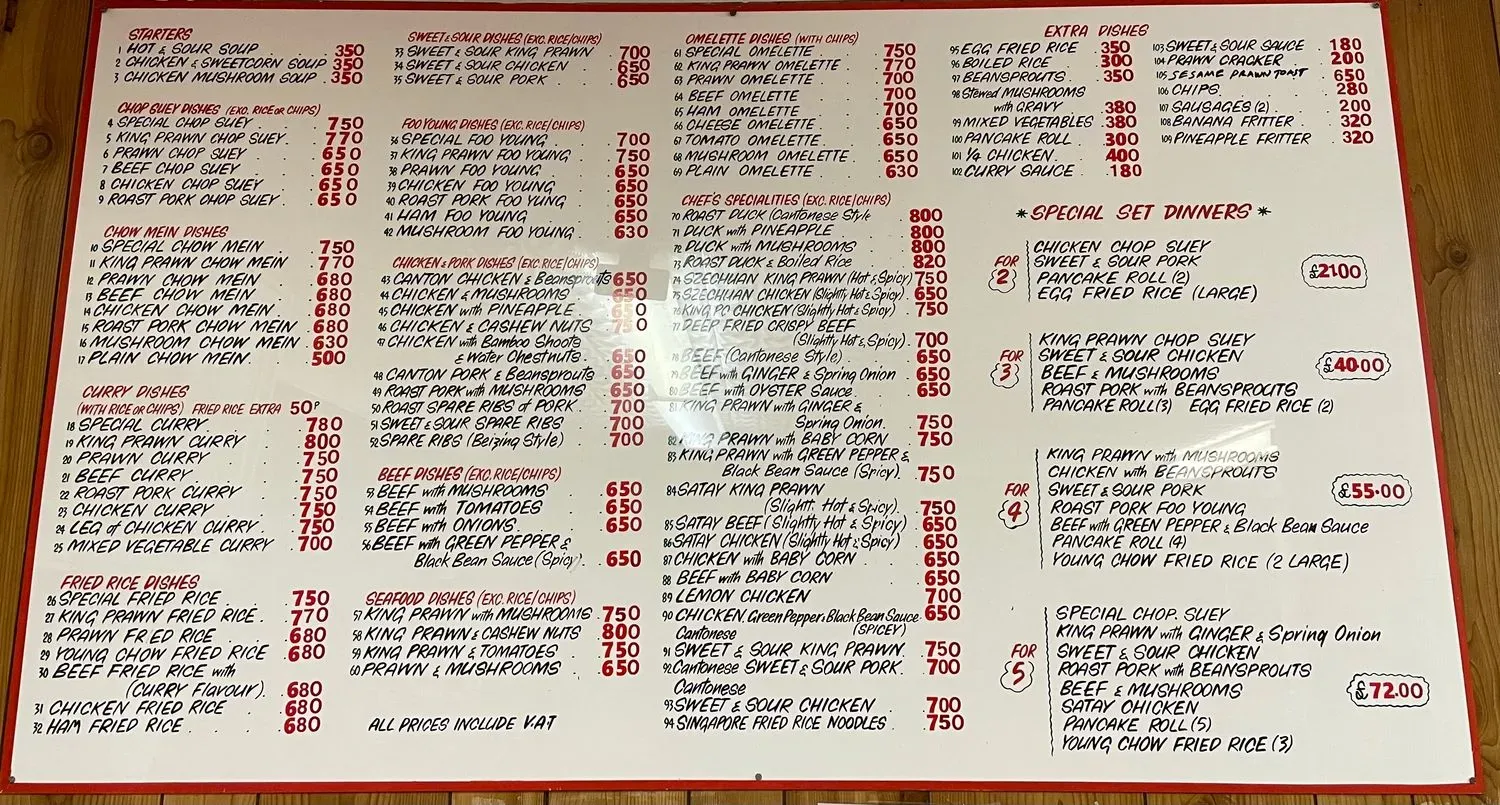 STARTERS
1 HOT & SOUR SOUP . 350
2 CHICKEN & SWEETCORN SOUP 350
3 CHICKEN MUSHROOM SOUP . 350
CHOP SUEY DISHES (EXC. RICE OR CHIPS)
4 SPECIAL CHOP SUEY . 750
5 KING PRAWN CHOP SUEY . 770
6 PRAWN CHOP SUEY . 650
7 BEEF CHOP SUEY . 650
8 CHICKEN CHOP SUEY . 650
9 ROAST PORK CHOP SUEY . 650
CHOW MEIN DISHES
10 SPECIAL CHOW MEIN . 750
11 KING PRAWN CHOW MEIN . 770
12 PRAWN CHOW MEIN . 680
13 BEEF CHOW MEIN . 680
14 CHICKEN CHOW MEIN . 680
15 ROAST PORK CHOW MEIN . 680
16 MUSHROOM CHOW MEIN . 630
17 PLAIN CHOW MEIN . 500
CURRY DISHES
(WITH RICE OR CHIPS) FRIED RICE EXTRA 50P
18 SPECIAL CURRY . 780
19 KING PRAWN CURRY . 800
20 PRAWN CURRY . 750
21 BEEF CURRY . 750
22 ROAST PORK CURRY . 750
23 CHICKEN CURRY . 750
24 LEG of CHICKEN CURRY . 750
25 MIXED VEGETABLE CURRY . 700
FRIED RICE DISHES
26 SPECIAL FRIED RICE . 750
27 KING PRAWN FRIED RICE . 770
28 PRAWN FRIED RICE . 680
29 YOUNG CHOW FRIED RICE . 680
30 BEEF FRIED RICE with
(CURRY Flavour) . 680
31 CHICKEN FRIED RICE . 680
32 HAM FRIED RICE . 680
SWEET & SOUR DISHES (EXC. RICE/CHIPS)
33 SWEET & SOUR KING PRAWN . 700
34 SWEET & SOUR CHICKEN . 650
35 SWEET & SOUR PORK . 650
FOO YOUNG DISHES (EXC. RICE/CHIPS)
36 SPECIAL FOO YOUNG . 700
37 KING PRAWN FOO YOUNG . 750
38 PRAWN FOO YOUNG . 650
39 CHICKEN FOO YOUNG . 650
40 ROAST PORK FOO YUNG . 650
41 HAM FOO YOUNG . 650
42 MUSHROOM FOO YOUNG . 630
CHICKEN & PORK DISHES (EXC. RICE/CHIPS)
43 CANTON CHICKEN & Beansprouts 650
44 CHICKEN & MUSHROOMS . 650
45 CHICKEN with PINEAPPLE . 650
46 CHICKEN & CASHEW NUTS . 750
47 CHICKEN with Bamboo Shoots
& Water Chestnuts . 650
48 CANTON PORK & Beansprouts . 650
49 ROAST PORK with MUSHROOMS . 650
50 ROAST SPARE RIBS of PORK . 700
51 SWEET & SOUR SPARE RIBS . 700
52 SPARE RIBS (Beizing Style) . 700
BEEF DISHES (EXC. RICE/CHIPS)
53 BEEF with MUSHROOMS . 650
54 BEEF with TOMATOES . 650
55 BEEF with ONIONS . 650
56 BEEF with GREEN PEPPER &
Black Bean Sauce (Spicy) . 650
SEAFOOD DISHES (EXC. RICE/CHIPS)
57 KING PRAWN with MUSHROOMS . 750
58 KING PRAWN & CASHEW NUTS . 800
59 KING PRAWN & TOMATOES . 750
60 PRAWN & MUSHROOMS . 650
ALL PRICES INCLUDE V.A.T
OMELETTE DISHES (WITH CHIPS)
61 SPECIAL OMELETTE . 750
62 KING PRAWN OMELETTE . 770
63 PRAWN OMELETTE . 700
64 BEEF OMELETTE . 700
65 HAM OMELETTE . 700
66 CHEESE OMELETTE . 650
67 TOMATO OMELETTE . 650
68 MUSHROOM OMELETTE . 650
69 PLAIN OMELETTE . 630
CHEF'S SPECIALITIES (EXC. RICE/CHIPS)
70 ROAST DUCK (Cantonese Style . 800
71 DUCK with PINEAPPLE . 800
72 DUCK with MUSHROOMS . 800
73 ROAST DUCK & Boiled Rice . 820
74 SZECHUAN KING PRAWN (Hot & Spicy) 750
75 SZECHUAN CHICKEN (Slightly Hot & Spicy) . 650
76 KING PO CHICKEN (Slightly Hot & Spicy) . 750
77 DEEP FRIED CRISPY BEEF
(Slightly Hot & Spicy) . 700
78 BEEF (Cantonese Style) . 650
79 BEEF with GINGER & Spring Onion . 650
80 BEEF with OYSTER Sauce . 650
81 KING PRAWN with GINGER &
Spring Onion . 750
82 KING PRAWN with BABY CORN . 750
83 KING PRAWN with GREEN PEPPER &
Black Bean Sauce (Spicy) . 750
84 SATAY KING PRAWN
(Slight. Hot & Spicy) . 750
85 SATAY BEEF (Slightly Hot & Spicy) . 650
86 SATAY CHICKEN (Slightly Hot & Spicy) . 650
87 CHICKEN with BABY CORN . 650
88 BEEF with BABY CORN . 650
89 LEMON CHICKEN . 700
90 CHICKEN. Green Pepper & Black Bean Sauce . 650
(SPICEY)
Cantonese
91 SWEET & SOUR KING PRAWN . 750
92 Cantonese SWEET & SOUR PORK . 700
Cantonese
93 SWEET & SOUR CHICKEN . 700
94 SINGAPORE FRIED RICE NOODLES . 750
EXTRA DISHES
95 EGG FRIED RICE . 350
96 BOILED RICE . 300
97 BEANSPROUTS . 350
98 Stewed MUSHROOMS
with GRAVY . 380
99 MIXED VEGETABLES . 380
100 PANCAKE ROLL . 300
101 ¼ CHICKEN . 400
102 CURRY SAUCE . 180
103 SWEET & SOUR SAUCE . 180
104 PRAWN CRACKER . 200
105 SESAME PRAWN TOAST . 650
106 CHIPS . 280
107 SAUSAGES (2) . 200
108 BANANA FRITTER . 320
109 PINEAPPLE FRITTER . 320
* SPECIAL SET DINNERS *
FOR 2
CHICKEN CHOP SUEY
SWEET & SOUR PORK
PANCAKE ROLL (2)
EGG FRIED RICE (LARGE)
£21.00
FOR 3
KING PRAWN CHOP SUEY
SWEET & SOUR CHICKEN
BEEF & MUSHROOMS
ROAST PORK with BEANSPROUTS
PANCAKE ROLL (3) EGG FRIED RICE (2)
£40.00
FOR 4
KING PRAWN with MUSHROOMS
CHICKEN with BEANSPROUTS
SWEET & SOUR PORK
ROAST PORK FOO YOUNG
BEEF with GREEN PEPPER & Black Bean Sauce
PANCAKE ROLL (4)
YOUNG CHOW FRIED RICE (2 LARGE)
£55.00
FOR 5
SPECIAL CHOP. SUEY
KING PRAWN with GINGER & Spring Onion
SWEET & SOUR CHICKEN
ROAST PORK with BEANSPROUTS
BEEF & MUSHROOMS
SATAY CHICKEN
PANCAKE ROLL (5)
YOUNG CHOW FRIED RICE (3)
£72.00